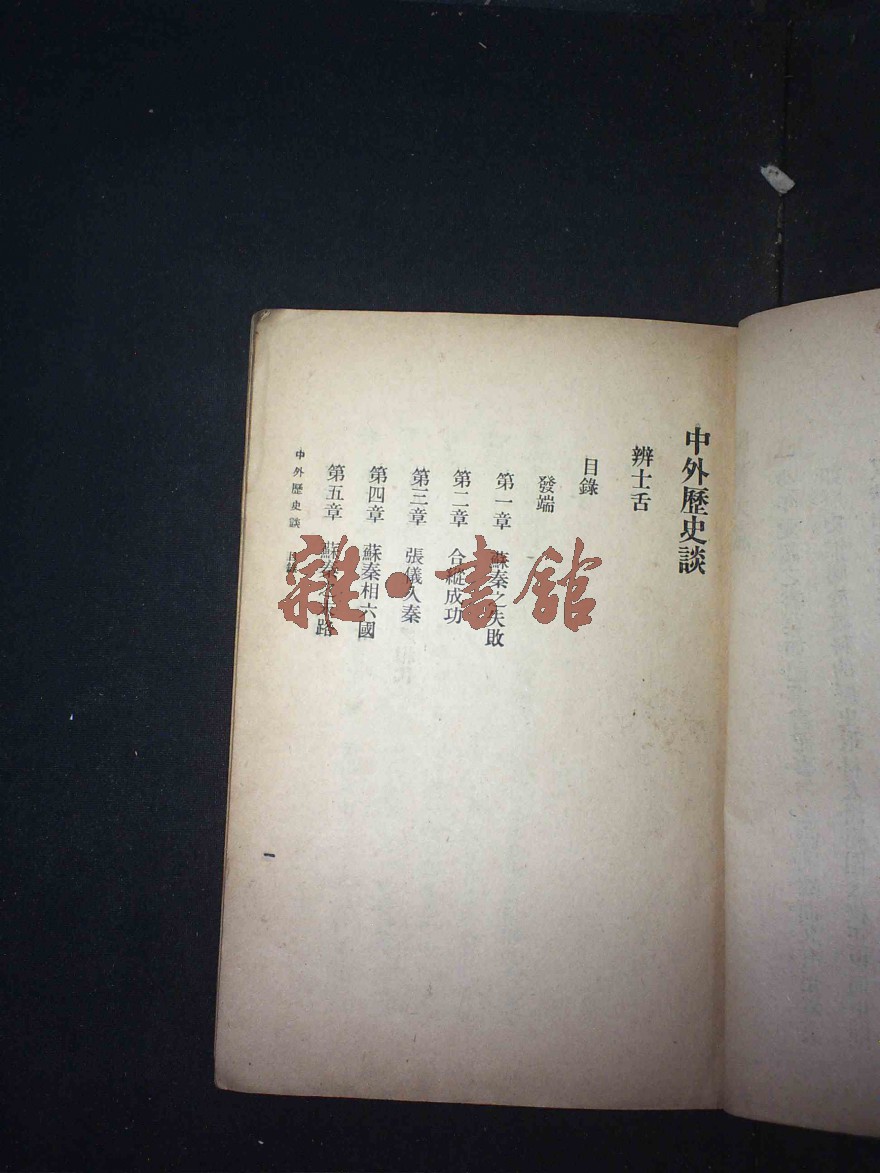 中外歷史談
辨士舌
目錄
發端
第一章 蘇秦之失敗
第二章 合縱成功
第三章 張儀入秦
第四章 蘇秦相六國
第五章 蘇秦 路
中外歷史談 目錄
一
雜·書館